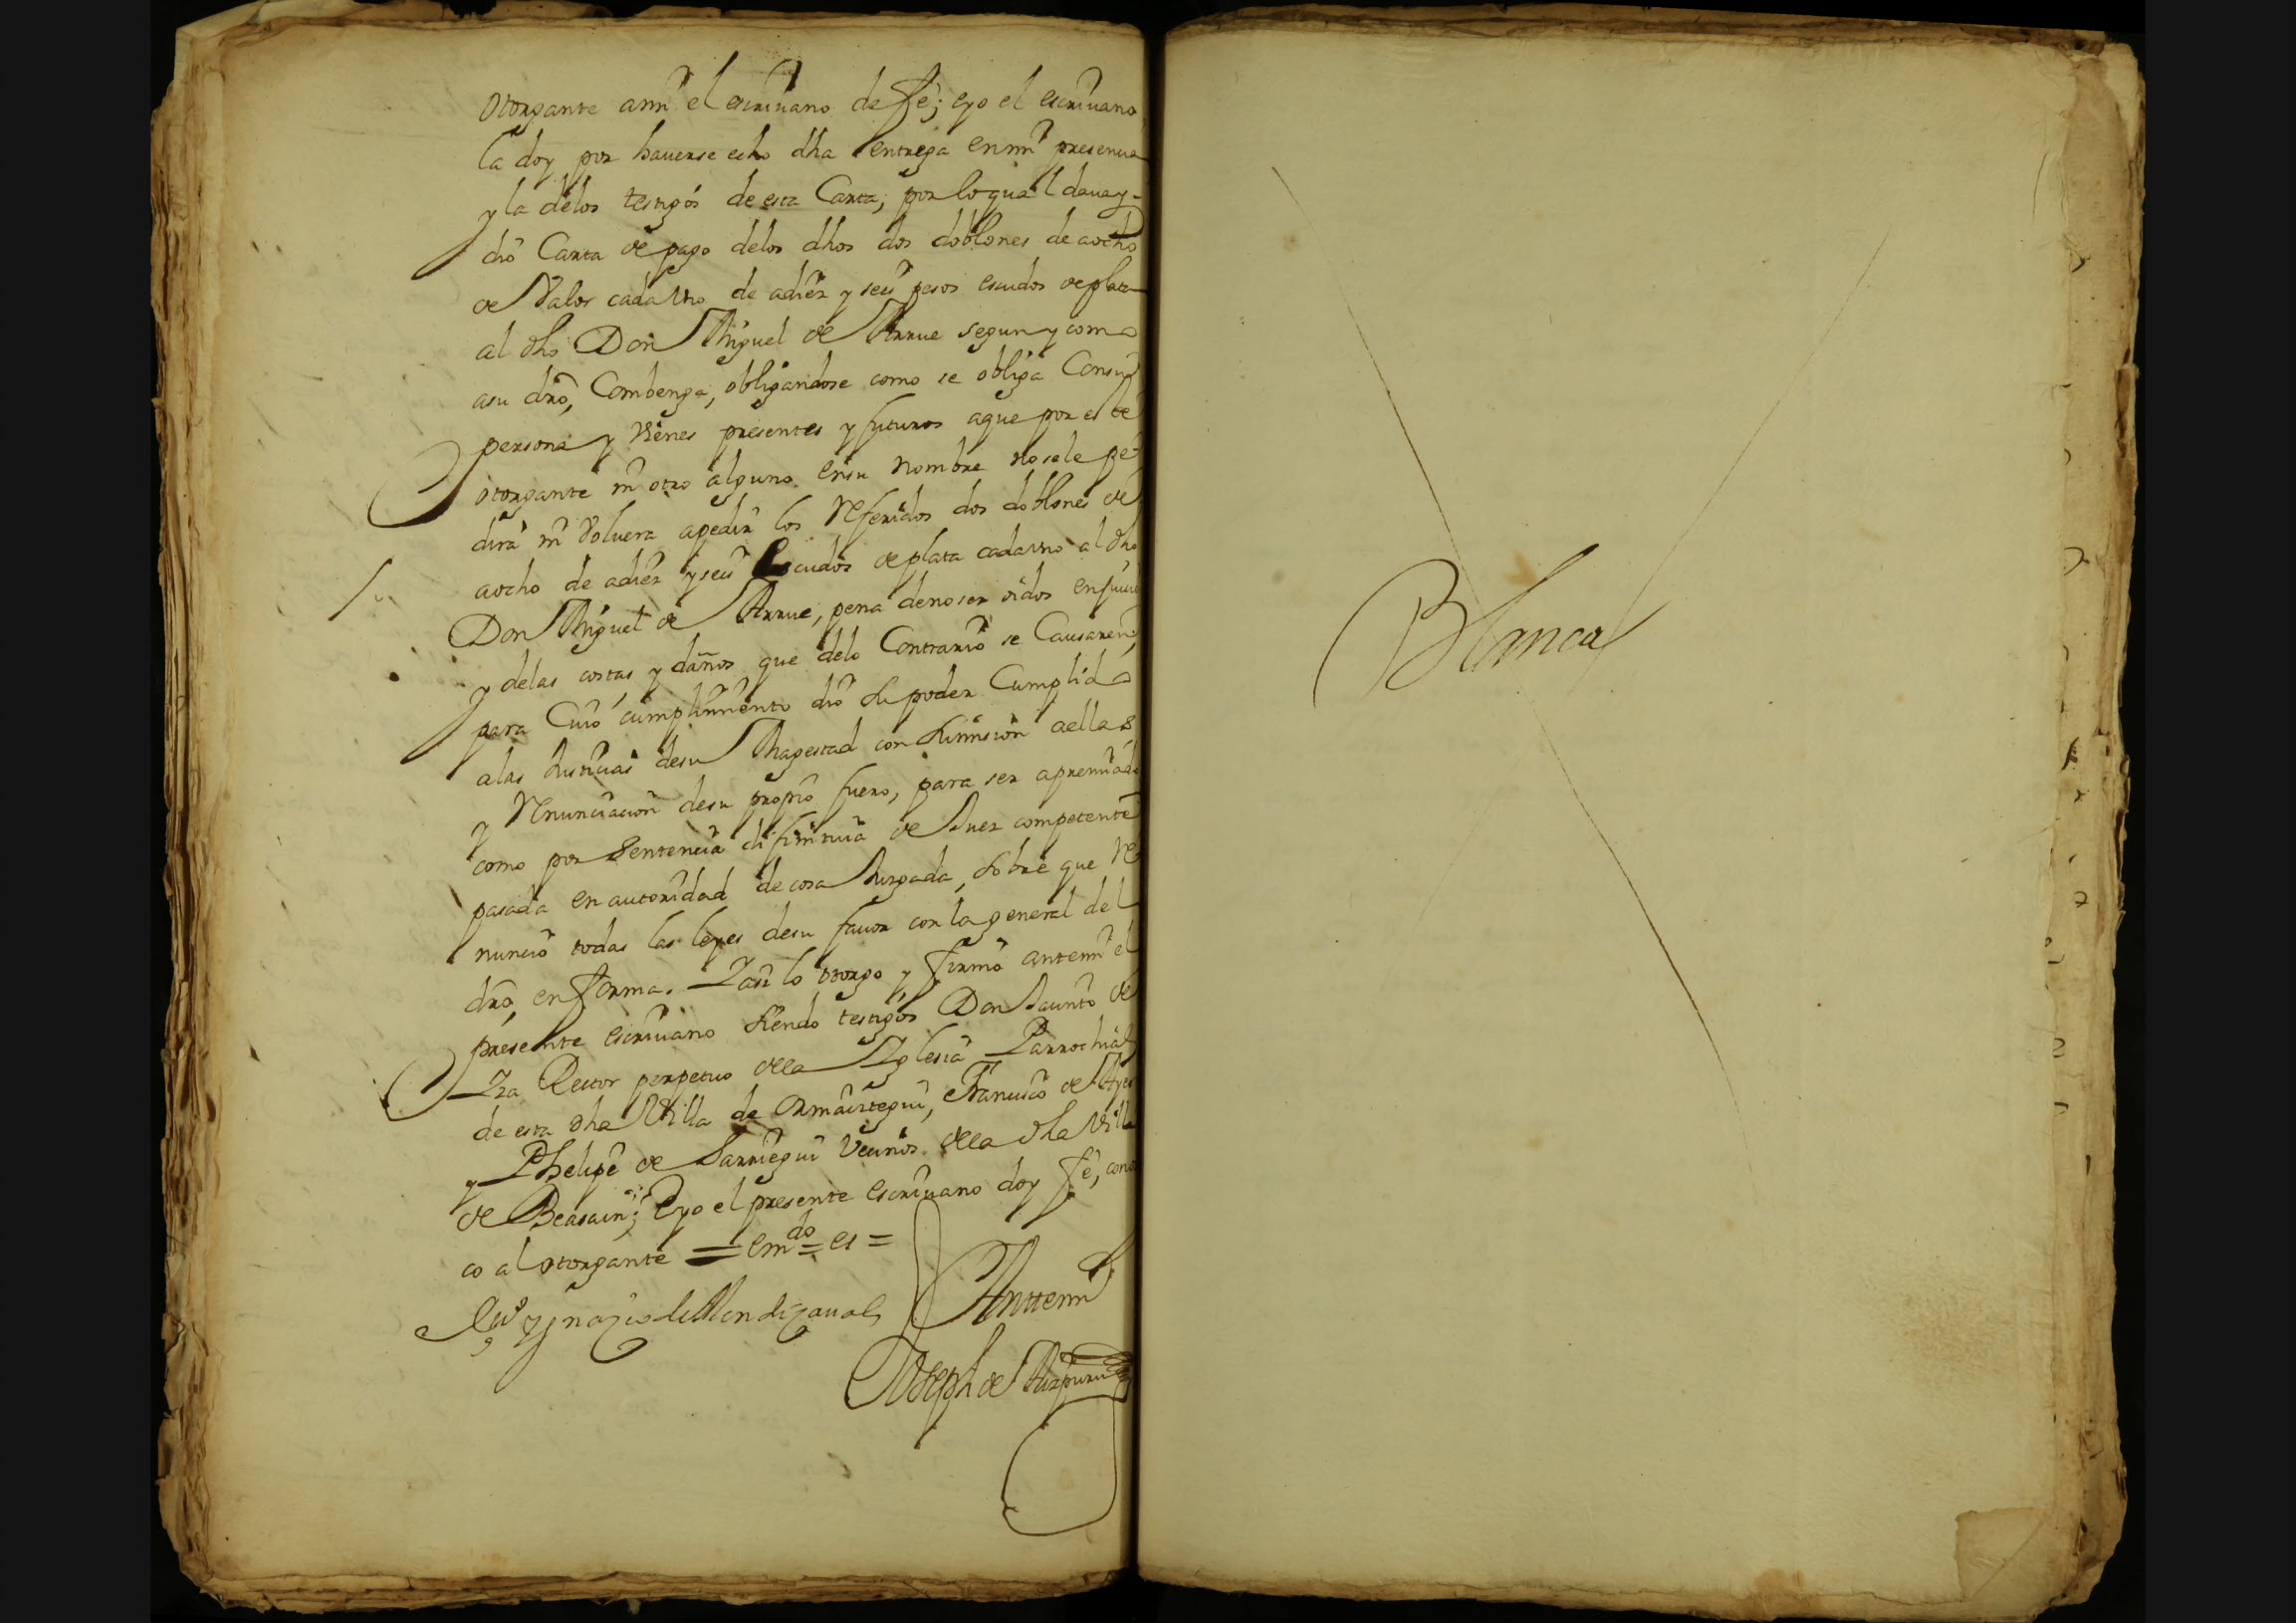 otorgante a mi el escriuano de fe; e yo el escriuano
la doy por hauerse echo dha entrega en mi presencia
y la de los testigos de esta Carta, por lo qual daua y
dio Carta de pago de los dhos dos doblones de a ocho
de Valor cada Vno de a diez y seis pesos escudos de plata
al dho Don Miguel de Arrue segun y como
a su dro, Combenga, obligandose como se obliga Con su
persona y Vienes presentes y futuros a que por este
otorgante ni otro alguno en su nombre no se le pe-
dira ni Voluera a pedir los Referidos dos doblones de
a ocho de a diez y seis Escudos de plata cada vno al dho
Don Miguel de Arrue, pena de no ser oidos en juicio
y de las costas y daños que de lo Contrario se Causaren,
para Cuio cumplimiento dio su poder Cumplido
a las Justicias de su Magestad con sumision a ellas
y Renunciacion de su propio fuero, para ser apremiado
como por Sentencia difinitiua de Juez competente
pasada en autoridad de cosa Juzgada, sobre que Re
nuncio todas las leyes de su fauor con la general del
dro, en forma. Y asi lo otorgo y firmo ante mi el
presente escriuano siendo testigos Don Jacinto de
Yza Rector perpetuo de la Yglesia Parrochial
de esta dha Villa de Ormaiztegui, Francisco de
y Phelipe de Sarriegui Vecinos de la dha Villa
de Beasain; E yo el presente escriuano doy fe, conoz
co al otorgante = em.do = es =
Ygnazio de Mendizaual
Antte mi
Joseph de Aizpuru
Blanca